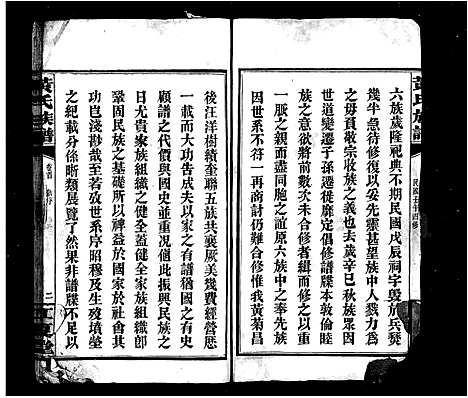 黃氏族譜
民國壬午四修
六族歲隆祀典不期民國戊辰祠宇毀於兵燹
幾半急待修復以妥先靈甚望族中人戮力爲
之母有敬宗收族之義也去歲辛巳秋族眾因
世道變遷子孫徙靡定倡修譜牒本敦倫睦
族之意欲將前數次未合修者緝而修之以重
一脈之親而盡同胞之誼原六族中之奉先族
因世系不符一再商討仍難合修惟我黃菊昌
後汪洋樹績奎聯五族共襄厥美幾費經營歷
一載而大功告成夫以家之有譜猶國之有史
顧譜之代價與國史並重況値此振興民族之
日尤貴家族組織之健全蓋健全家族組織卽
鞏固民族之基礎所以裨益於國家於社會其
功豈淺尠哉至若攷世系序昭穆及生歿墳塋
之紀載分條晰類展覽了然果非譜牒不足以
黃氏族譜
卷首
二
江夏堂